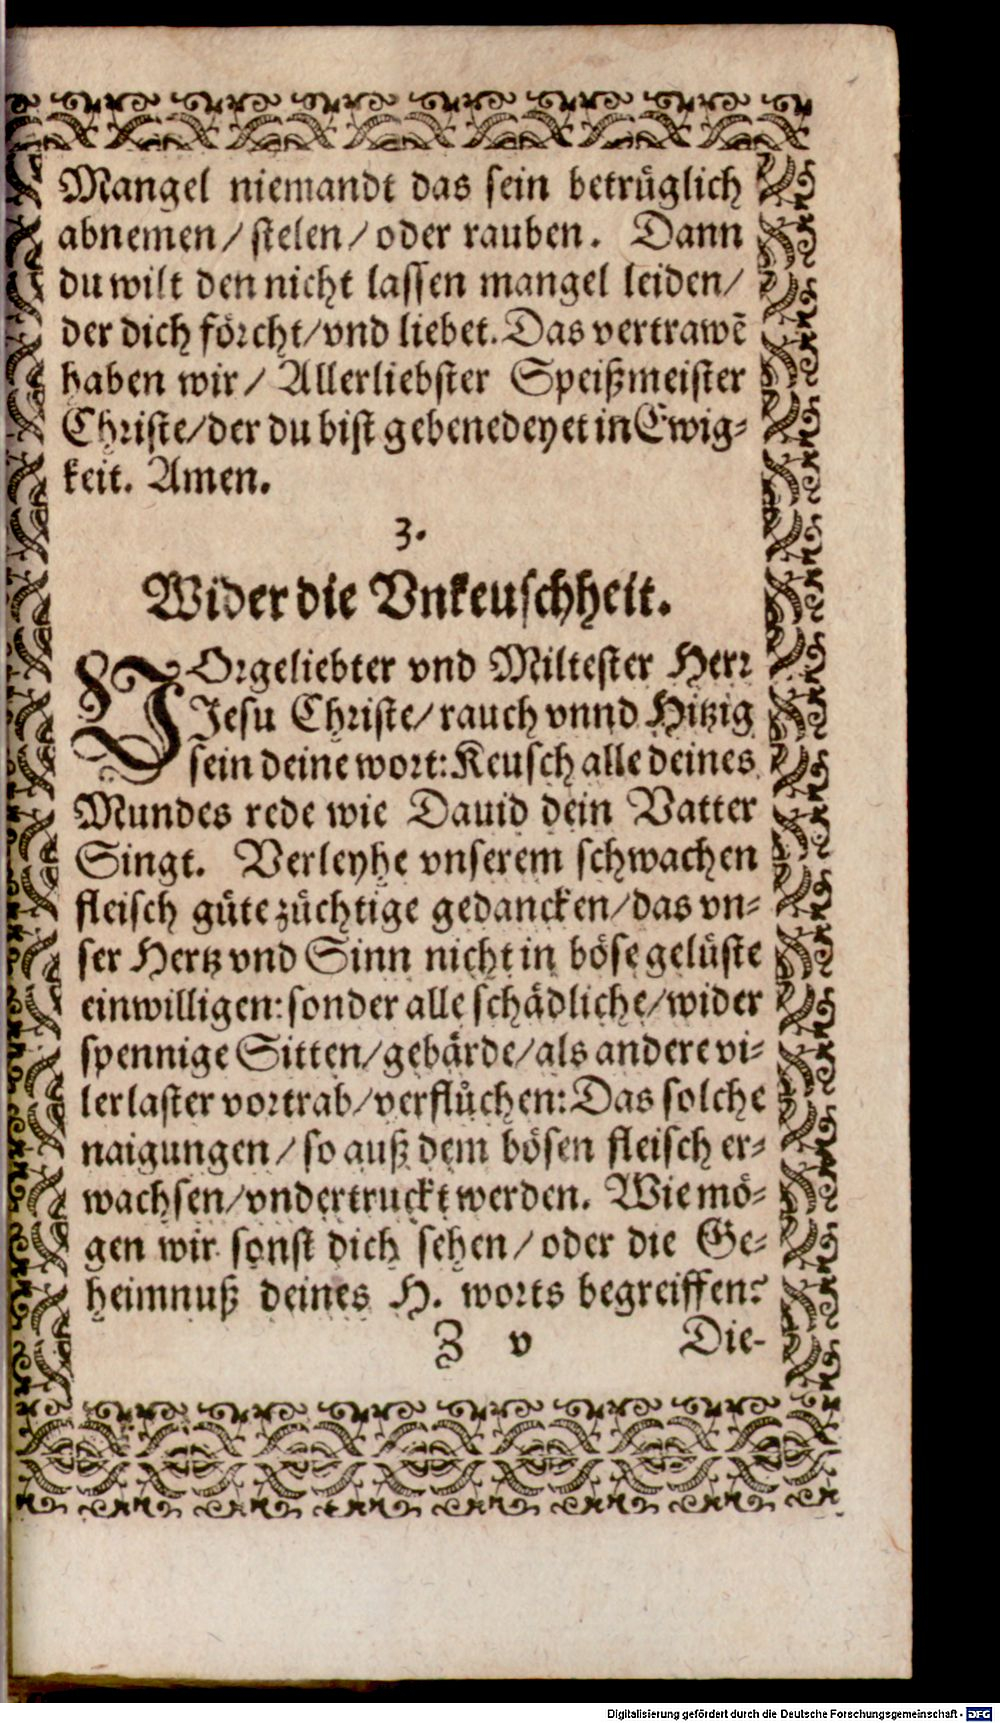 Mangel niemandt das sein betrüglich
abnemen/ stelen/ oder rauben. Dann
du wilt den nicht lassen mangel leiden/
der dich förcht/ vnd liebet. Das vertrawẽ
haben wir/ Allerliebster Speißmeister
Christe/ der du bist gebenedeyet in Ewig-
keit. Amen.
3.
Wider die Vnkeuschheit.
VOrgeliebter vnd Miltester Herr
Jesu Christe/ rauch vnnd Hitzig
sein deine wort: Keusch alle deines
Mundes rede wie Dauid dein Vatter
Singt. Verleyhe vnserem schwachen
fleisch güte züchtige gedancken/ das vn-
ser Hertz vnd Sinn nicht in böse gelüste
einwilligen: sonder alle schädliche/ wider
spennige Sitten/ gebärde/ als andere vi-
ler laster vortrab/ verflůchen: Das solche
naigungen/ so auß dem bösen fleisch er-
wachsen/ vndertruckt werden. Wie mö-
gen wir sonst dich sehen/ oder die Ge-
heimnuß deines H. worts begreiffen?
Z v Die-
Digitalisierung gefördert durch die Deutsche Forschungsgemeinschaft - DFG